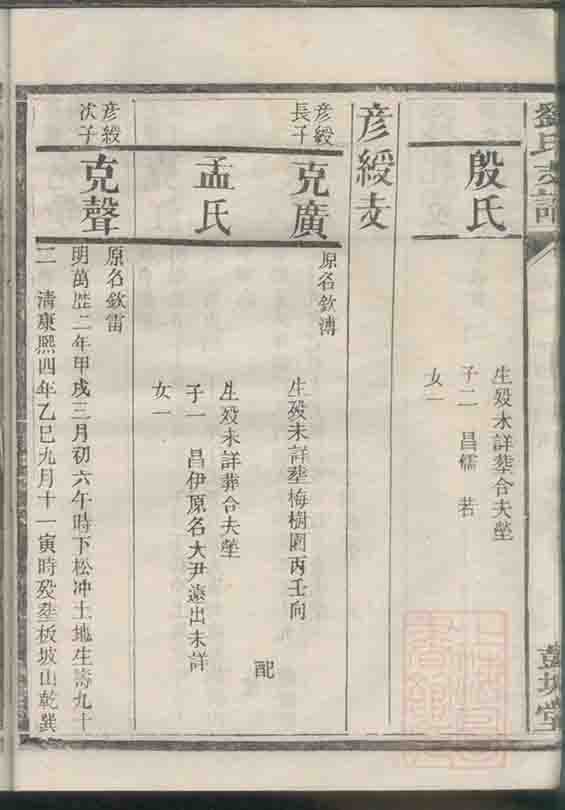 劉氏支譜
殷氏
生殁未詳塟合夫塋
子二　昌儒　若
女一
彦綬支
彦綬
長子
克廣
原名欽溥
生殁未詳塟梅樹園丙壬向
配
孟氏
生殁未詳葬合夫塋
子一　昌伊原名大尹遠出未詳
女一
彦綬
次子
克聲
原名欽雷
明萬歷二年甲戌三月初六午時下松冲土地生壽九十
二　清康熙四年乙巳九月十一寅時殁塟板坡山乾巽